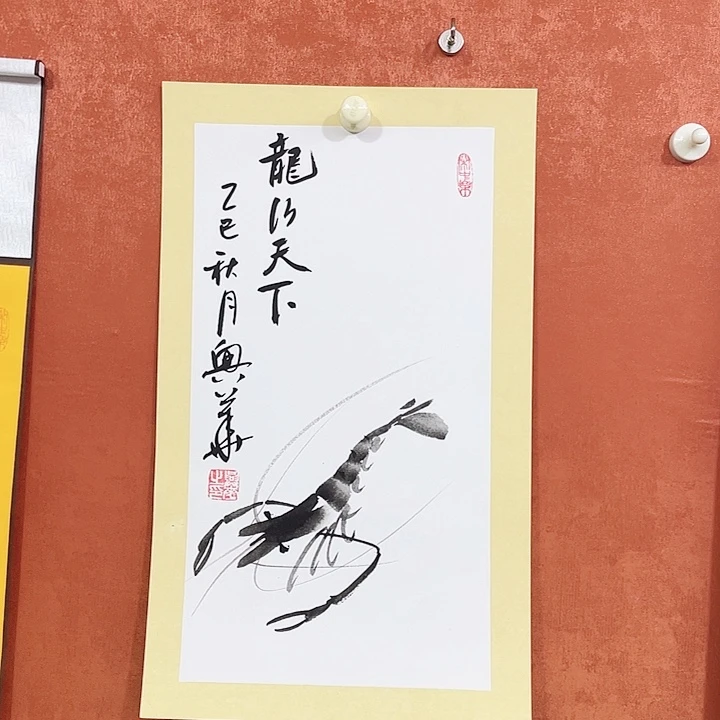 龍行天下
乙巳秋月興華